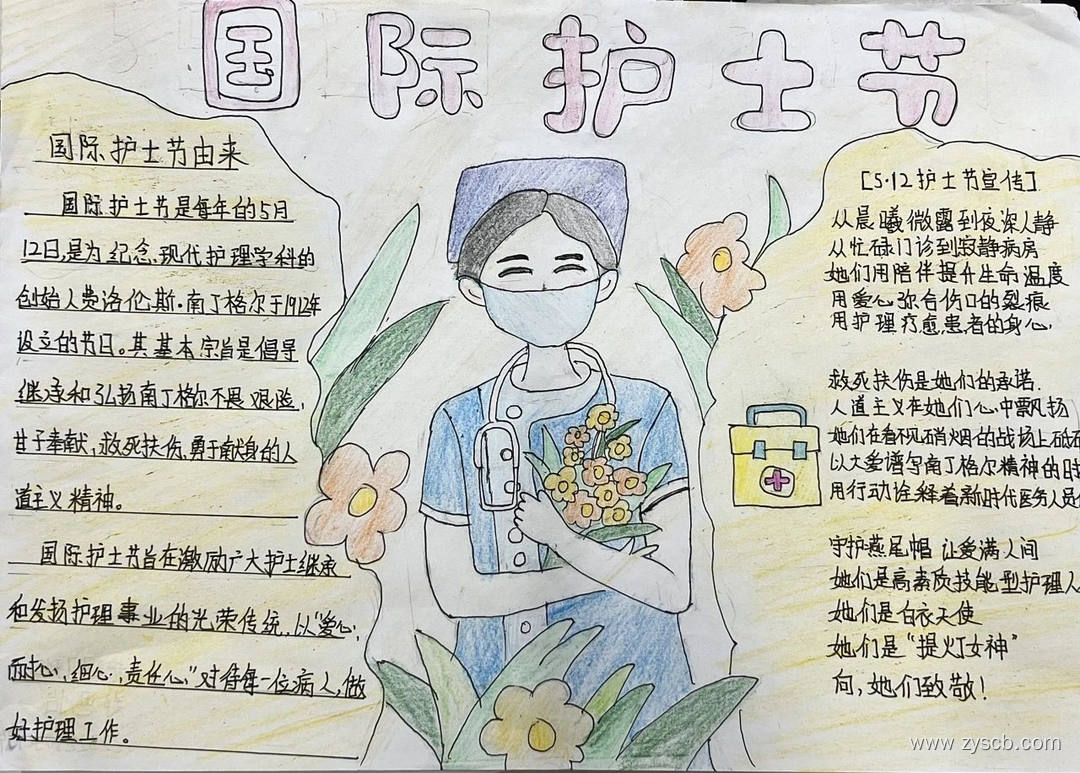 国际护士节
国际护士节由来
国际护士节是每年的5月
12日,是为纪念现代护理学科的
创始人费洛伦斯·南丁格尔于1912年
设立的节日。其基本宗旨是倡导
继承和弘扬南丁格尔不畏艰险,
甘于奉献,救死扶伤,勇于献身的人
道主义精神。
国际护士节旨在激励广大护士继承
和发扬护理事业的光荣传统,以“爱心,
耐心,细心,责任心”对待每一位病人,做
好护理工作。
[5·12护士节宣传]
从晨曦微露到夜深人静
从忙碌门诊到寂静病房
她们用陪伴提升生命温度
用爱心弥合伤口的裂痕
用护理疗愈患者的身心
救死扶伤是她们的承诺.
人道主义在她们心中飘扬
她们在看不见硝烟的战场上
以大爱谱写南丁格尔精神的时
用行动诠释着新时代医务人员
守护燕尾帽 让爱满人间
她们是高素质技能型护理人
她们是白衣天使
她们是“提灯女神”
向,她们致敬!
www.zyscb.com